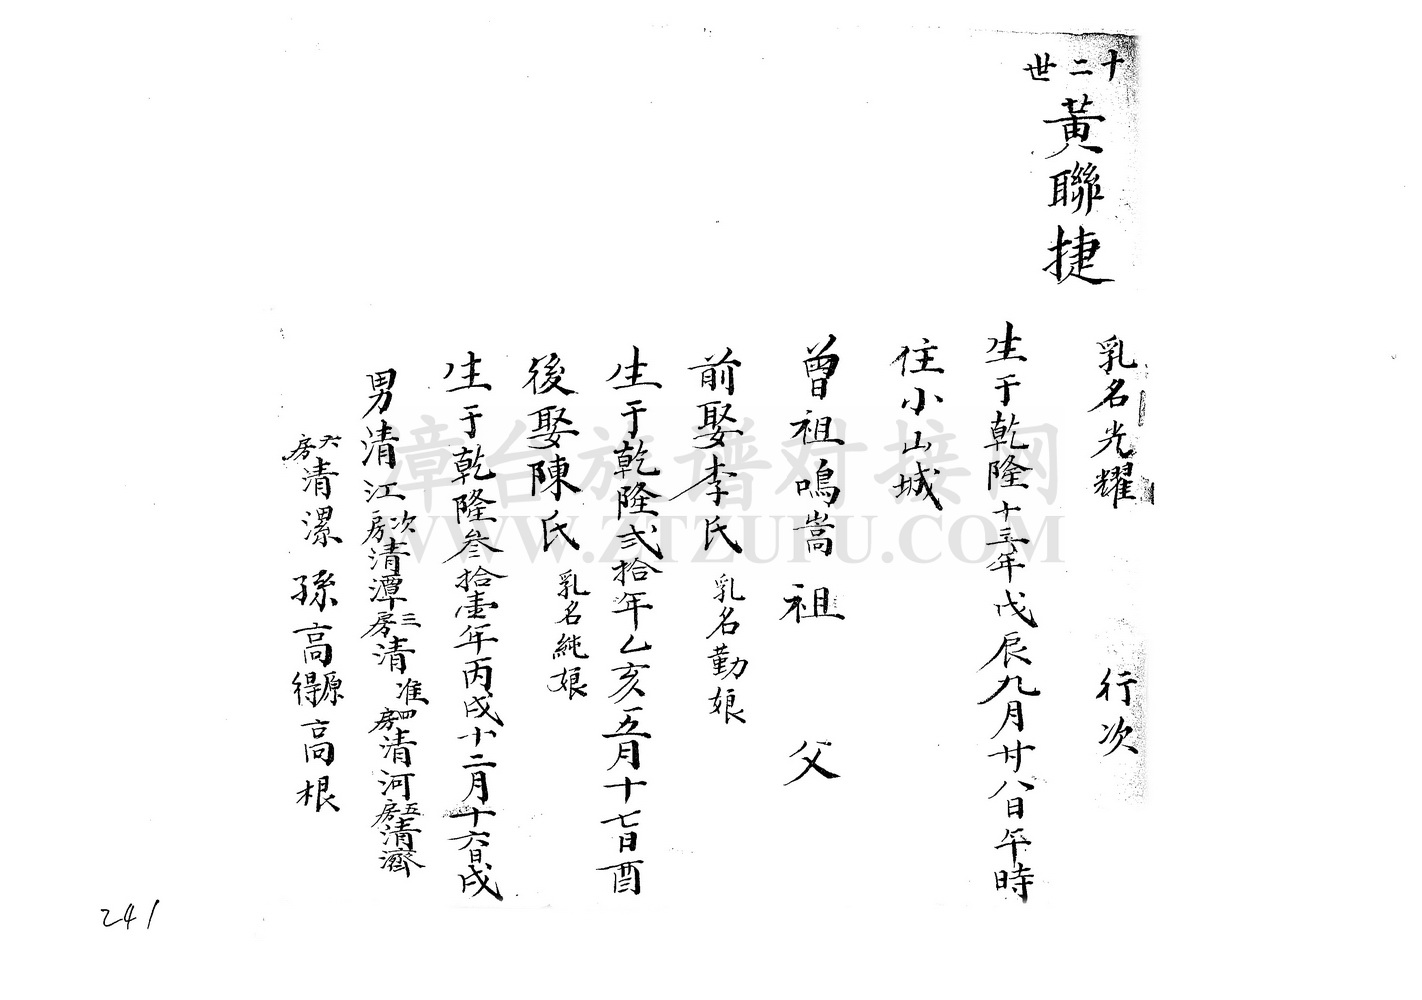 十二世
黃聯捷
乳名光耀 行次
生于乾隆十三年戊辰九月廿八日午時
住小山城
曾祖鳴嵩 祖 父
前娶李氏 乳名勤娘
生于乾隆弍拾年乙亥五月十七日酉
後娶陳氏 乳名純娘
生于乾隆叁拾壹年丙戌十二月十六日戌
男清江 次房清潭 三房清淮 四房清河 五房清濟
六房清漯 孫高源得高根
漳台族谱对接网
WWW.ZTZUPU.COM
241